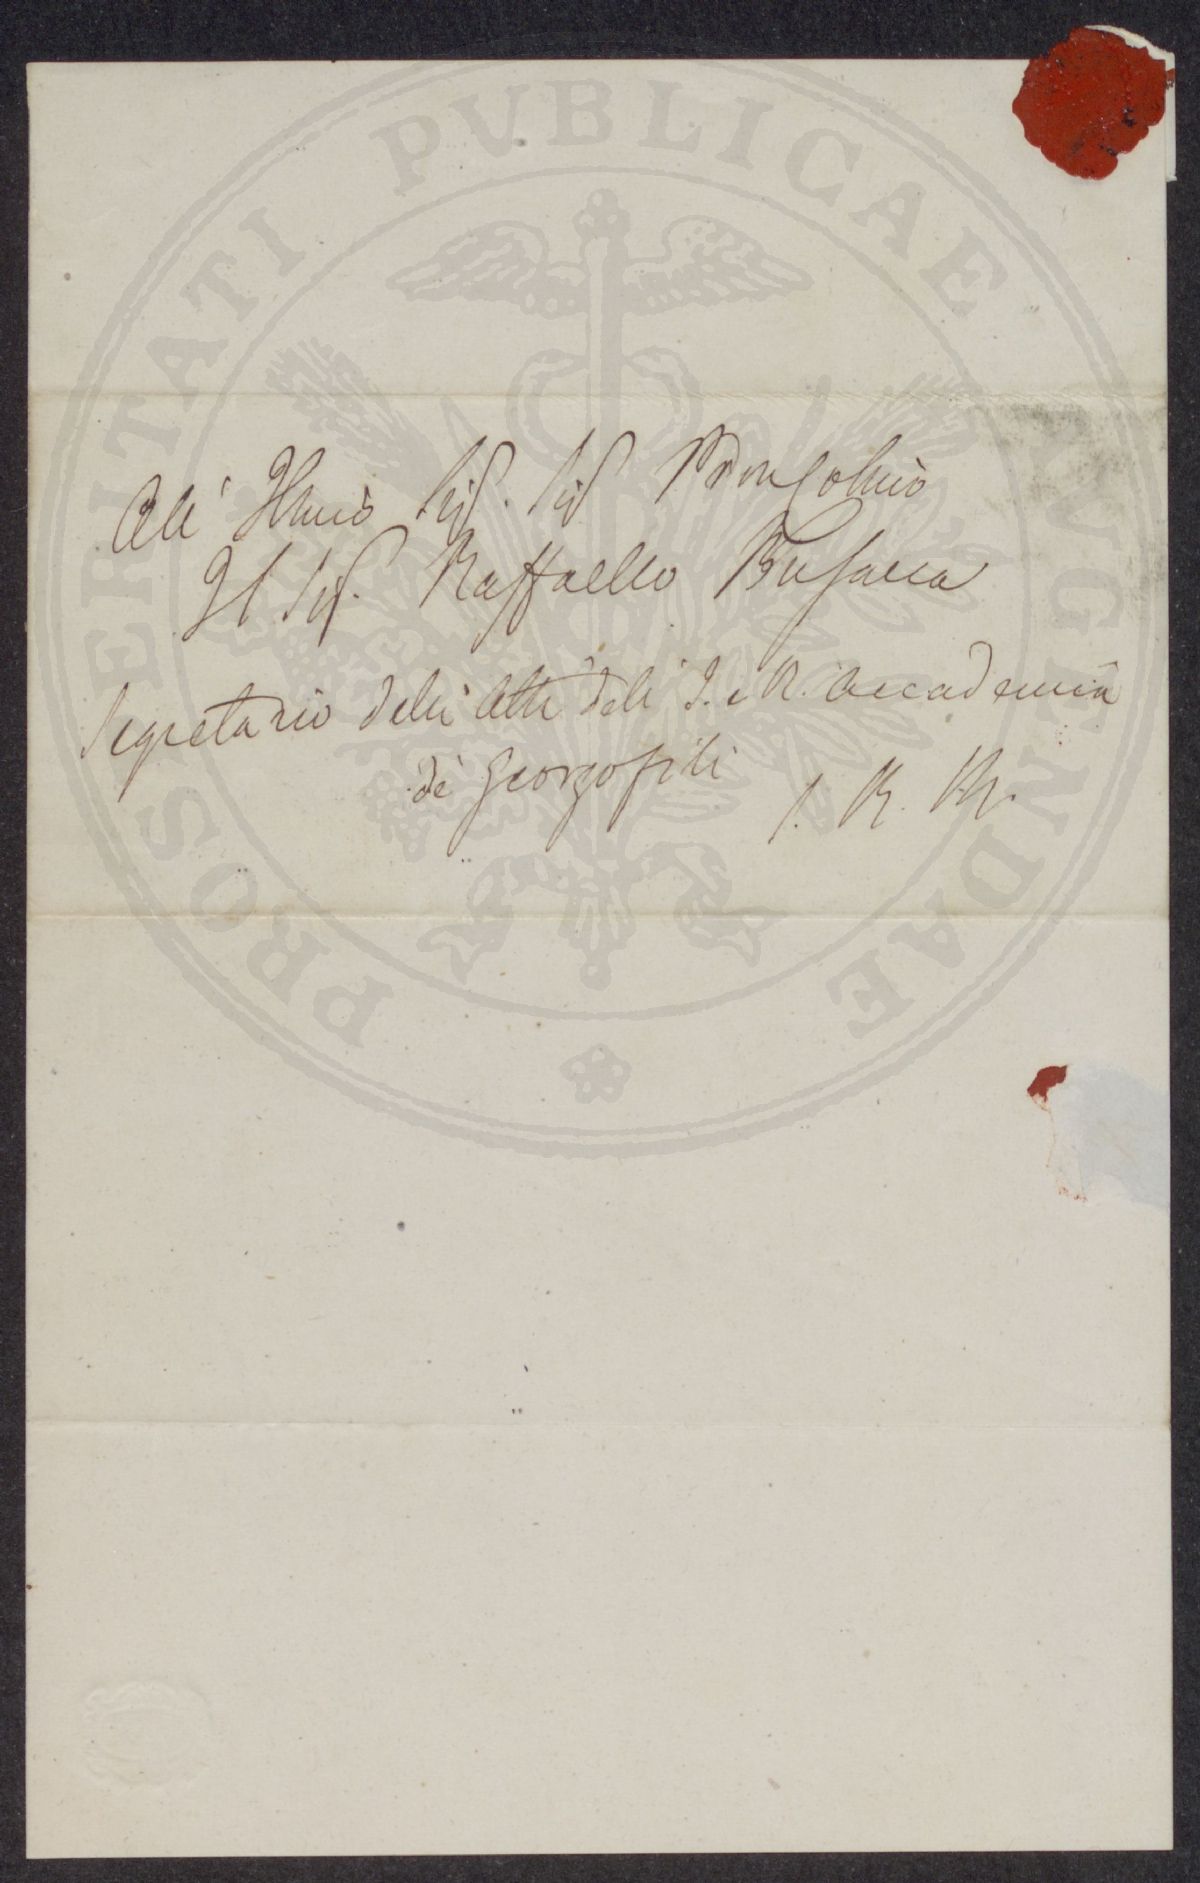 PROSPERITATI PVBLICAE AVGENDAE
All' Illmo Sig. Sig Pron Colmo
Il Sig. Raffaello Busacca
Segretario delli Atti dell' I. e R. Accademia
de' Georgofili
S. R. M.